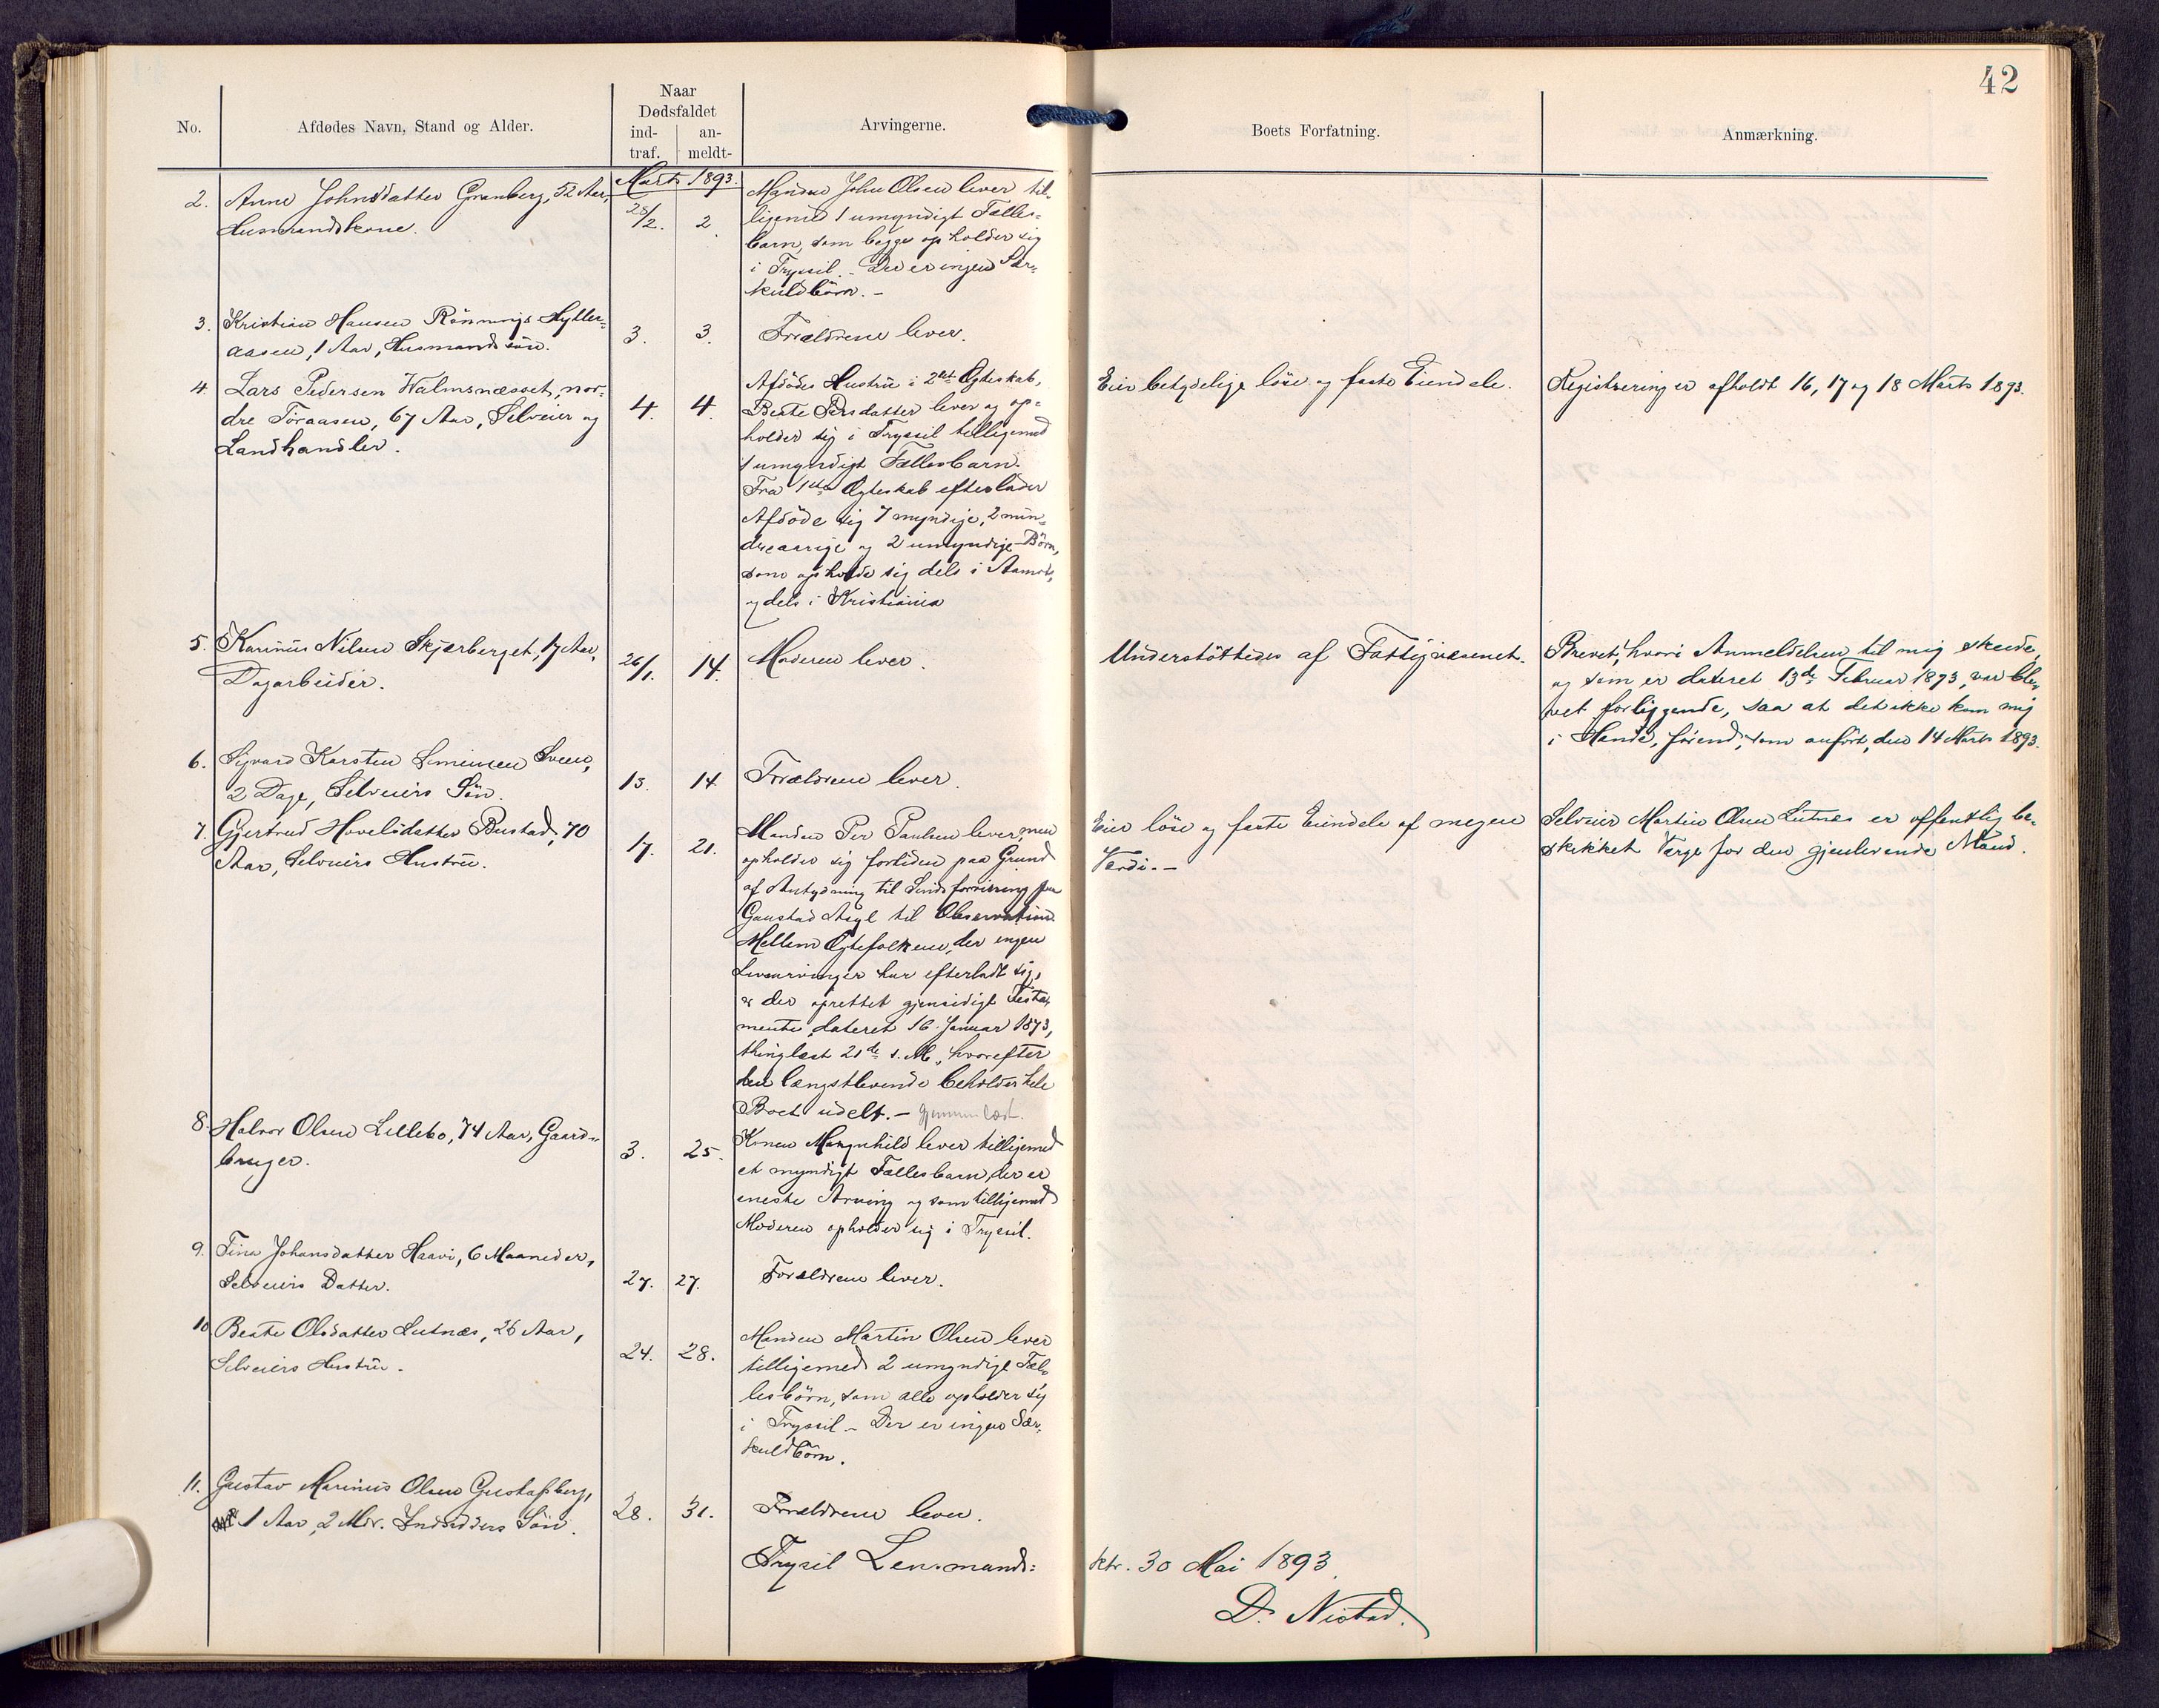 42
No.
Afdødes Navn, Stand og Alder.
Naar
Dødsfaldet
ind-
traf.
an-
meldt-
Arvingerne.
Boets Forfatning.
Anmærkning.
Marts 1893.
2. Anne Johnsdatter Granberg, 52 Aar,
Husmandskone.
28/2. 2.
Manden John Olsen lever til-
ligemed 1 umyndigt Fælles-
barn, som begge opholder sig
i Trysil. - Der er ingen Sær-
kuldbörn. -
3. Kristian Hansen Rönnings Hyller-
aasen, 1 Aar, Husmands sön.
3. 3.
Forældrene lever.
4. Lars Pedersen Walmsnæsset, nor-
dre Töraasen, 67 Aar, Selveier og
Landhandler.
4. 4.
Afdödes Hustru i 2det Ægteskab,
Beate Persdatter lever og op-
holder sig i Trysil tilligemed
1 umyndigt Fællesbarn.
Fra 1ste Ægteskab efterlader
Afdöde sig 7 myndige, 2 min-
dreaarige og 2 umyndige Börn,
som opholde sig dels i Aamot,
og dels i Kristiania
Eier betydelige löse og faste Eiendele.
Registrering er afholdt 16, 17 og 18 Marts 1893.
5. Karinus Nilsen Skjærberget, 17 Aar,
Dagarbeider.
26/1. 14.
Moderen lever.
Understöttedes af Fattigvæsenet.
Brevet, hvori Anmeldelsen til mig skede,
og som er dateret 13de Februar 1893, var ble-
vet forliggende, saa at det ikke kom mig
i Hænde, förend, som anfört, den 14 Marts 1893.
6. Sigvard Karsten Simensen Sveen,
2 Dage, Selveiers Sön.
13. 14.
Forældrene lever.
7. Gjertrud Hovelsdatter Bustad, 70
Aar, Selveiers Hustru.
17. 21.
Manden Per Paulsen lever men
opholder sig fortiden paa Grund
af Antydning til Sindsforvirring paa
Gaustad Asyl til Observation.
Mellem Ægtefolkene, der ingen
Livsarvinger har efterladt sig,
er der oprettet gjensidigt Testa-
mente, dateret 16. Januar 1873,
thinglæst 21de s. M., hvorefter
den længstlevende beholder hele
Boet udelt. - gjennemlæst.
Eier löse og faste Eiendele af megen
Værdi. -
Selveier Martin Olsen Lutnæs er offentlig be-
skikket Værge for den gjenlevende Mand.
8. Halvor Olsen Lillebo, 74 Aar, Gaard-
bruger.
3. 25.
Konen Mangnhild lever tilligemed
et myndigt Fællesbarn, der er
eneste Arving og som tilligemed
Moderen opholder sig i Trysil.
9. Tina Johansdatter Haavi, 6 Maaneder,
Selveiers Datter.
27. 27.
Forældrene lever.
10. Beate Olsdatter Lutnæs, 26 Aar,
Selveiers Hustru.
24. 28.
Manden Martin Olsen lever
tilligemed 2 umyndige Fæl-
lesbörn, som alle opholder sig
i Trysil. - Der er ingen Sær-
kuldbörn.
11. Gustav Marinus Olsen Gustafsberg,
1 Aar, 2 Mdr. Indsidders Sön.
28. 31.
Forældrene lever.
Trysil Lensmands-
ktr. 30 Mai 1893.
D. Nistad.